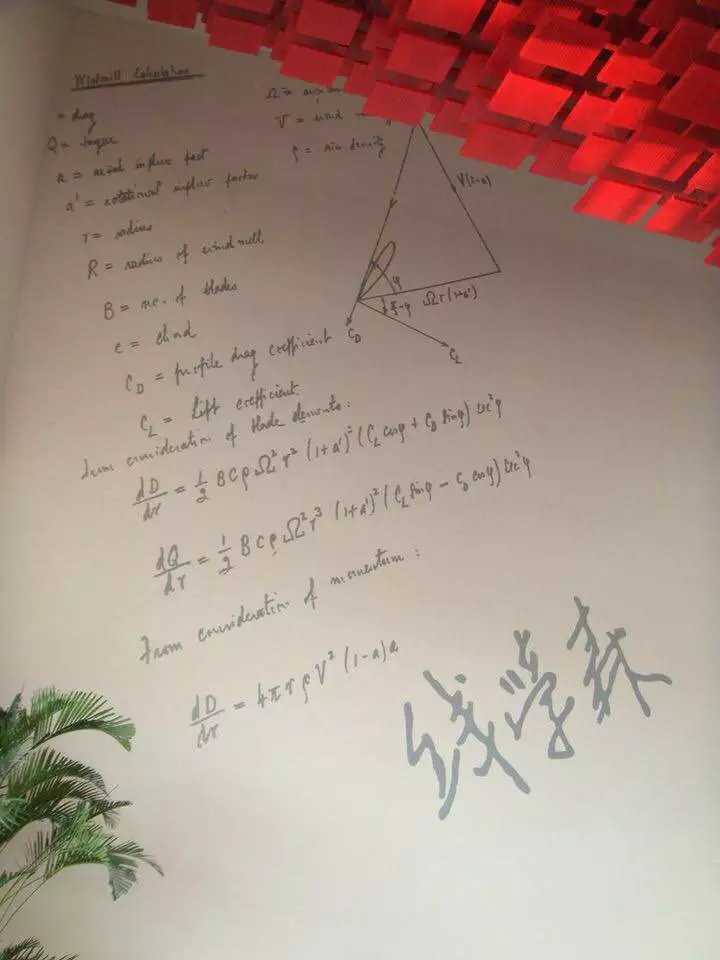 Windmill Calculation
= drag
Q = torque
a = axial influx fact
a' = rotational influx factor
r = radius
R = radius of windmill
B = no. of blades
c =
C_D = profile drag coefficient
C_L = Lift coefficient
Ω =
V = wind
ρ = air density
V(1-a)
φ
Ωr(1+a')
π/2-φ
C_D
C_L
From consideration of blade elements:
dD/dr = 1/2 B c ρ Ω² r² (1+a')² (C_L cosφ + C_D sinφ) sec²φ
dQ/dr = 1/2 B c ρ Ω² r³ (1+a')² (C_L sinφ - C_D cosφ) sec²φ
From consideration of momentum:
dD/dr = 4π r ρ V² (1-a)a
钱学森